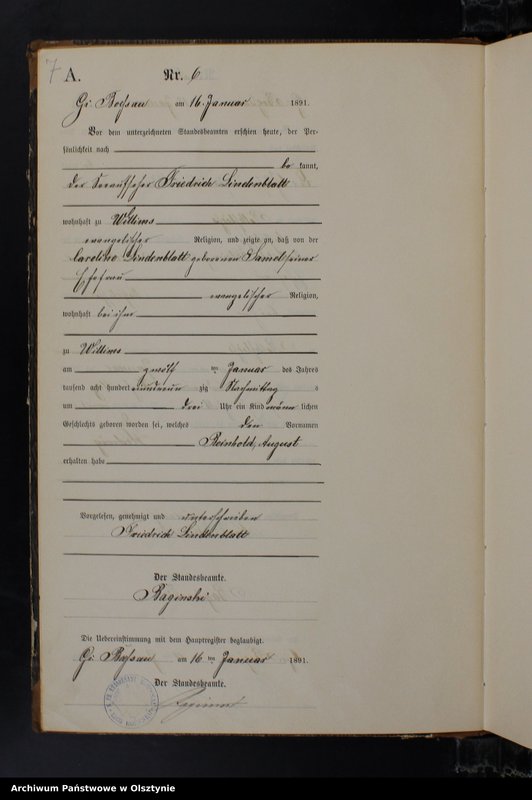 7 A. Nr. 6
Gr. Bössau am 16. Januar 1891.
Vor dem unterzeichneten Standesbeamten erschien heute, der Per-
sönlichkeit nach
be kannt,
der Friedrich Lindenblatt
wohnhaft zu Willims
evangelischer Religion, und zeigte an, daß von der
Caroline Lindenblatt geborenen seiner
Ehefrau
evangelischer Religion,
wohnhaft bei ihm
zu Willims
am zwölf ten Januar des Jahres
tausend acht hundert neunzig Nachmittag s
um drei Uhr ein Kind männ lichen
Geschlechts geboren worden sei, welches den Vornamen
Reinhold, August
erhalten habe
Vorgelesen, genehmigt und unterschrieben
Friedrich Lindenblatt
Der Standesbeamte.
Baginski
Die Uebereinstimmung mit dem Hauptregister beglaubigt.
Gr. Bössau am 16 ten Januar 1891.
Der Standesbeamte.
Archiwum Państwowe w Olsztynie